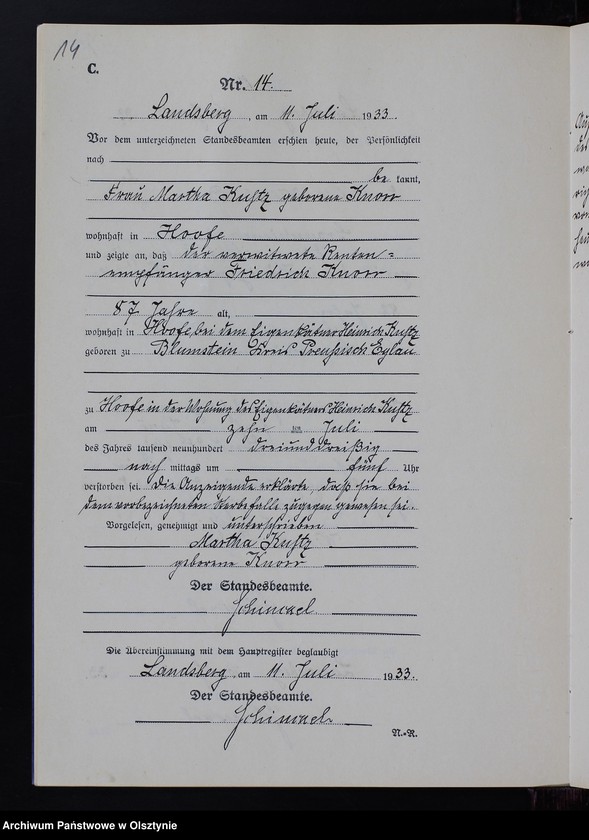 14
C.
Nr. 14.
Landsberg, am 11. Juli 1933.
Vor dem unterzeichneten Standesbeamten erschien heute, der Persönlichkeit
nach
be kannt,
Frau Martha Kustz geborene Knorr
wohnhaft in Hoofe
und zeigte an, daß der verwitwete Renten-
empfänger Friedrich Knorr
87 Jahre alt,
wohnhaft in Hoofe, bei dem Eigenkätner Heinrich Kustz
geboren zu Blumstein Kreis Preußisch Eylau
zu Hoofe in der Wohnung des Eigenkätners Heinrich Kustz
am zehn ten Juli
des Jahres tausend neunhundert dreiunddreißig
nach mittags um fünf Uhr
verstorben sei. Die Anzeigende erklärte, daß sie bei
dem vorbezeichneten Sterbefalle zugegen gewesen sei.
Vorgelesen, genehmigt und unterschrieben
Martha Kustz
geborene Knorr
Der Standesbeamte.
Die Übereinstimmung mit dem Hauptregister beglaubigt
Landsberg, am 11. Juli 1933.
Der Standesbeamte.
N.-R.
Archiwum Państwowe w Olsztynie